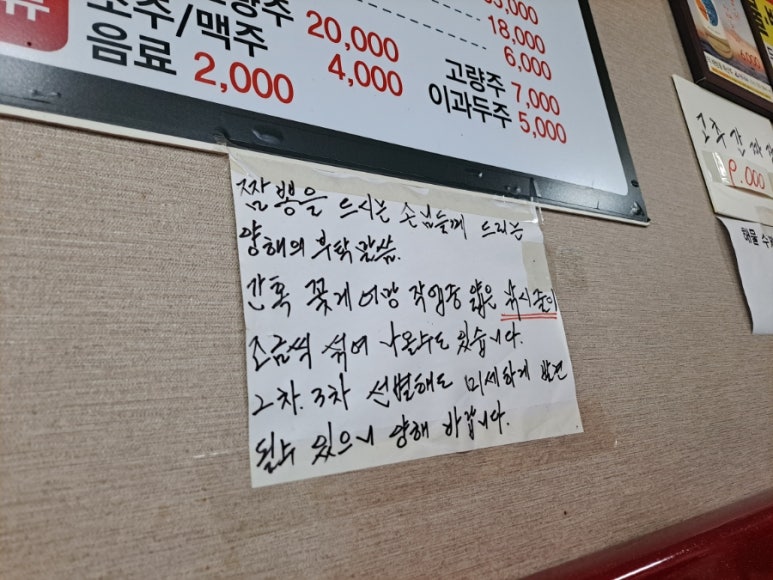 소주/맥주 4,000
음료 2,000
20,000
18,000
6,000
고량주 7,000
이과두주 5,000
짬뽕을 드시는 손님들께 드리는
양해의 부탁 말씀.
간혹 꽃게 어망 작업중 얇은 낚시줄이
조금씩 섞여 나올수도 있습니다.
2차. 3차 선별해도 미세하게 발견
될수 있으니 양해 바랍니다.
9.000
해물
6,000